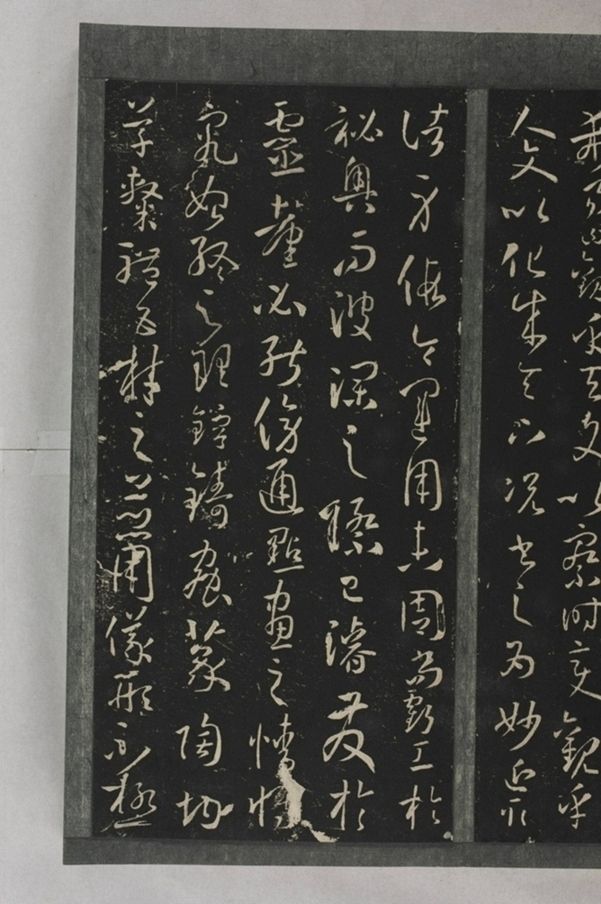 觀乎天文以察時變觀乎
人文以化成天下況書之為妙近取
諸身假令運用未周尚虧工於
祕奧而波瀾之際已濬發於
靈臺必能傍通點畫之情博
究始終之理鎔鑄蟲篆陶均
草隸體五材之並用儀形不極